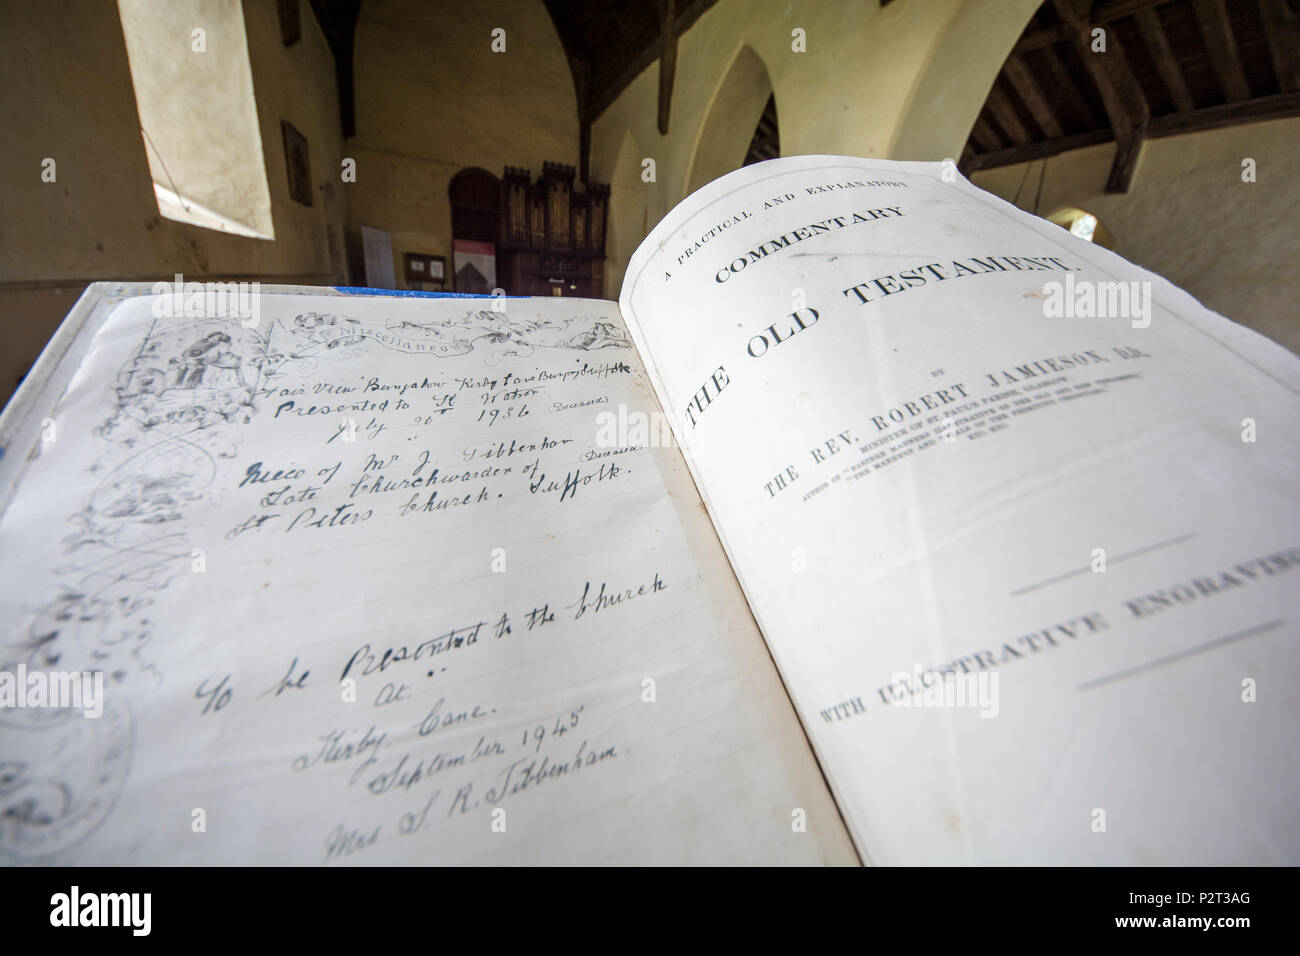 Miscellaneous
"Fair View" Bungalow Kirby Cane Bungay Suffolk
Presented to K Watson.
July 20th 1936 (Deceased)
"
Niece of Mr J. Tibbenham
Late Churchwarden of (Deceased)
St Peters Church. Suffolk.
To be Presented to the Church
At
Kirby Cane.
September 1945
Mrs S. R. Tibbenham.
A PRACTICAL AND EXPLANATORY
COMMENTARY
ON
THE OLD TESTAMENT.
BY
THE REV. ROBERT JAMIESON, D.D.,
MINISTER OF ST. PAUL'S PARISH, GLASGOW,
AUTHOR OF "EASTERN MANNERS ILLUSTRATIVE OF THE OLD AND NEW TESTAMENT,"
"THE MANNERS AND TRIALS OF THE PRIMITIVE CHRISTIANS,"
ETC. ETC.
WITH ILLUSTRATIVE ENGRAVING
a
alamy
alamy stock photo
P2T3AG
www.alamy.com